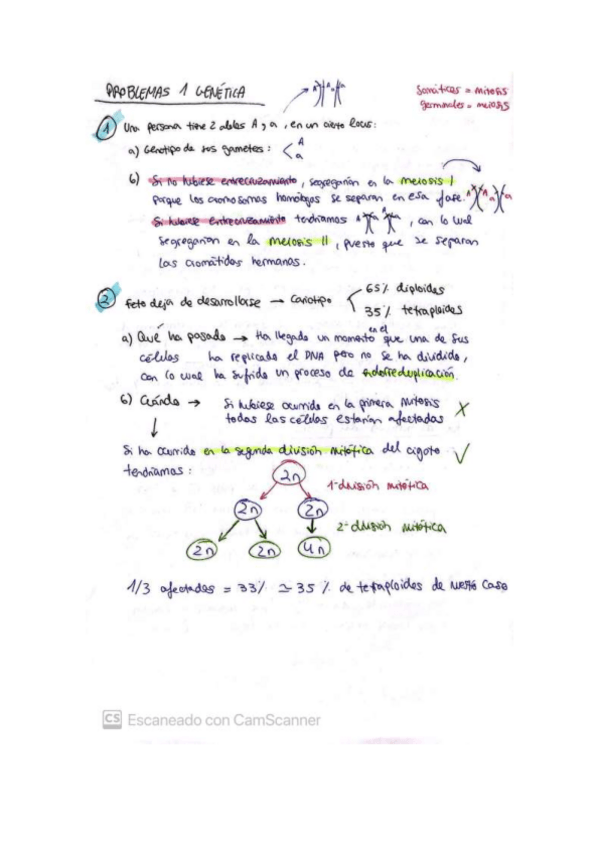 PROBLEMAS 1 GENÉTICA
Somáticas = mitosis
germinales = meiosis
1 Una persona tiene 2 alelos A y a, en un cierto locus:
a) Genotipo de sus gametos: A
a
b) Si no hubiese entrecruzamiento, segregarían en la meiosis I
porque los cromosomas homólogos se separan en esa fase.
Si hubiese entrecruzamiento tendríamos A a A a, con lo cual
segregarían en la meiosis II, puesto que se separan
las cromátidas hermanas.
2 Feto deja de desarrollarse → cariotipo 65% diploides
35% tetraploides
a) Qué ha pasado → Ha llegado un momento en el que una de sus
células ha replicado el DNA pero no se ha dividido,
con lo cual ha sufrido un proceso de endorreduplicación.
b) Cuándo → Si hubiese ocurrido en la primera mitosis
todas las células estarían afectadas X
Si ha ocurrido en la segunda división mitótica del cigoto
tendríamos:
2n
1ª división mitótica
2n 2n
2ª división mitótica
2n 2n 4n
1/3 afectados = 33% ≃ 35% de tetraploides de nuestro caso
CS Escaneado con CamScanner